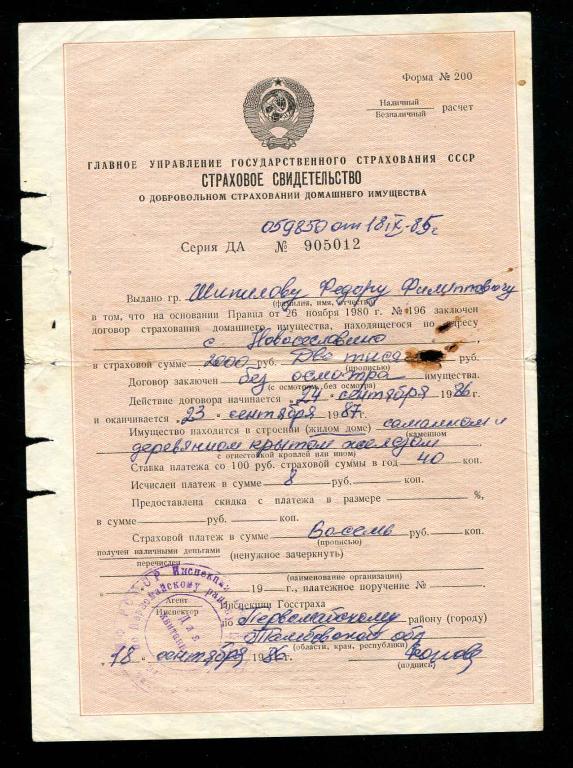 Форма № 200
Наличный
Безналичный расчет
ГЛАВНОЕ УПРАВЛЕНИЕ ГОСУДАРСТВЕННОГО СТРАХОВАНИЯ СССР
СТРАХОВОЕ СВИДЕТЕЛЬСТВО
О ДОБРОВОЛЬНОМ СТРАХОВАНИИ ДОМАШНЕГО ИМУЩЕСТВА
059850 от 18 IX-85г
Серия ДА № 905012
Выдано гр. Шипилову Федору Филипповичу
(фамилия, имя, отчество)
в том, что на основании Правил от 26 ноября 1980 г. № 196 заключен
договор страхования домашнего имущества, находящегося по адресу
с
в страховой сумме 2000 руб. Две тыся руб.
(прописью)
Договор заключен без осмотра имущества.
(с осмотром, без осмотра)
Действие договора начинается „24“ сентября 1986г.
и оканчивается „23“ сентября 1987г.
Имущество находится в строении (жилом доме) саманном и
(каменном
деревянном крытом железом
с огнестойкой кровлей или ином)
Ставка платежа со 100 руб. страховой суммы в год 40 коп.
Исчислен платеж в сумме 8 руб. коп.
Предоставлена скидка с платежа в размере %,
в сумме руб. коп.
Страховой платеж в сумме Восемь руб. коп.
(прописью)
получен наличными деньгами
перечислен (ненужное зачеркнуть)
(наименование организации)
19 г., платежное поручение №
Агент
Инспектор Инспекции Госстраха
по Первомайскому району (городу)
Тамбовской обл
(области, края, республики)
„18“ сентября 1986г.
(подпись)
Для
квитанций